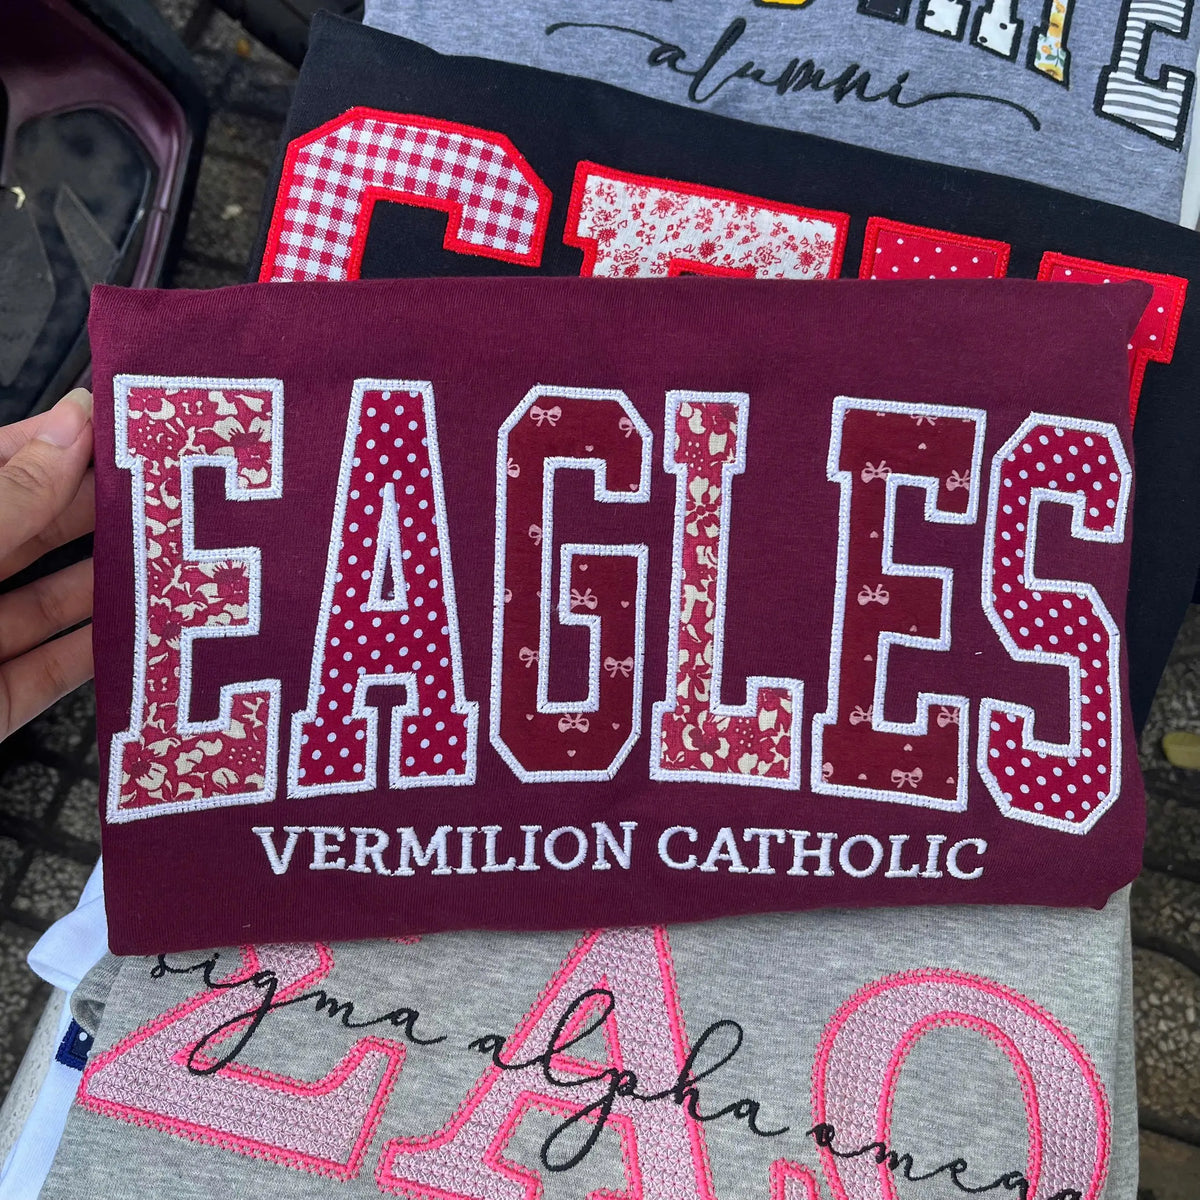 alumni
EAGLES
VERMILION CATHOLIC
ΣΑΩ
sigma alpha omega